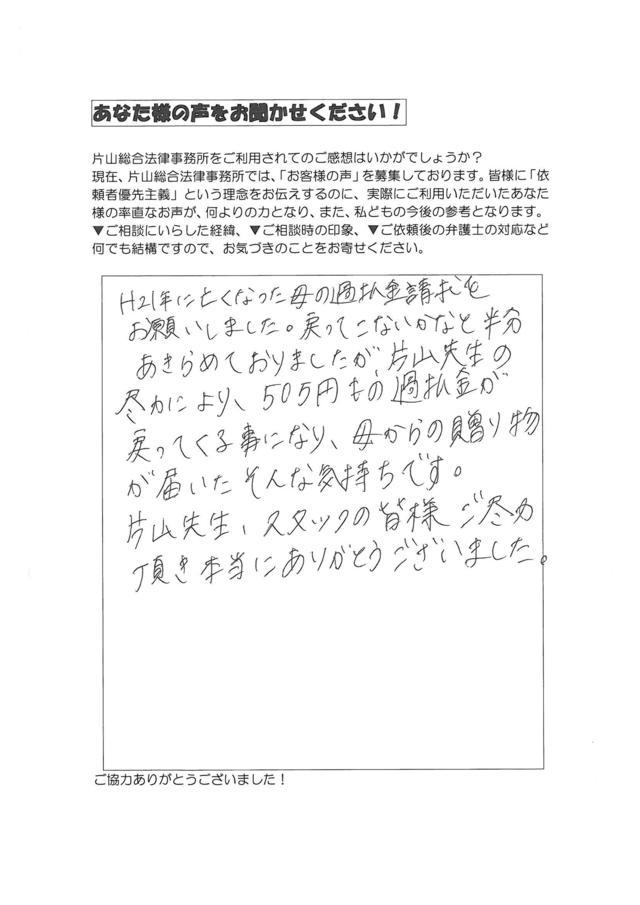 あなた様の声をお聞かせください！
片山総合法律事務所をご利用されてのご感想はいかがでしょうか？
現在、片山総合法律事務所では、「お客様の声」を募集しております。皆様に「依
頼者優先主義」という理念をお伝えするのに、実際にご利用いただいたあなた
様の率直なお声が、何よりの力となり、また、私どもの今後の参考となります。
▼ご相談にいらした経緯、▼ご相談時の印象、▼ご依頼後の弁護士の対応など
何でも結構ですので、お気づきのことをお寄せください。
H21年に亡くなった母の過払金請求を
お願いしました。戻ってこないかなと半分
あきらめておりましたが、片山先生の
尽力により、505円もの過払金が
戻ってくる事になり、母からの贈り物
が届いたそんな気持ちです。
片山先生、スタッフの皆様ご尽力
頂き本当にありがとうございました。
ご協力ありがとうございました！